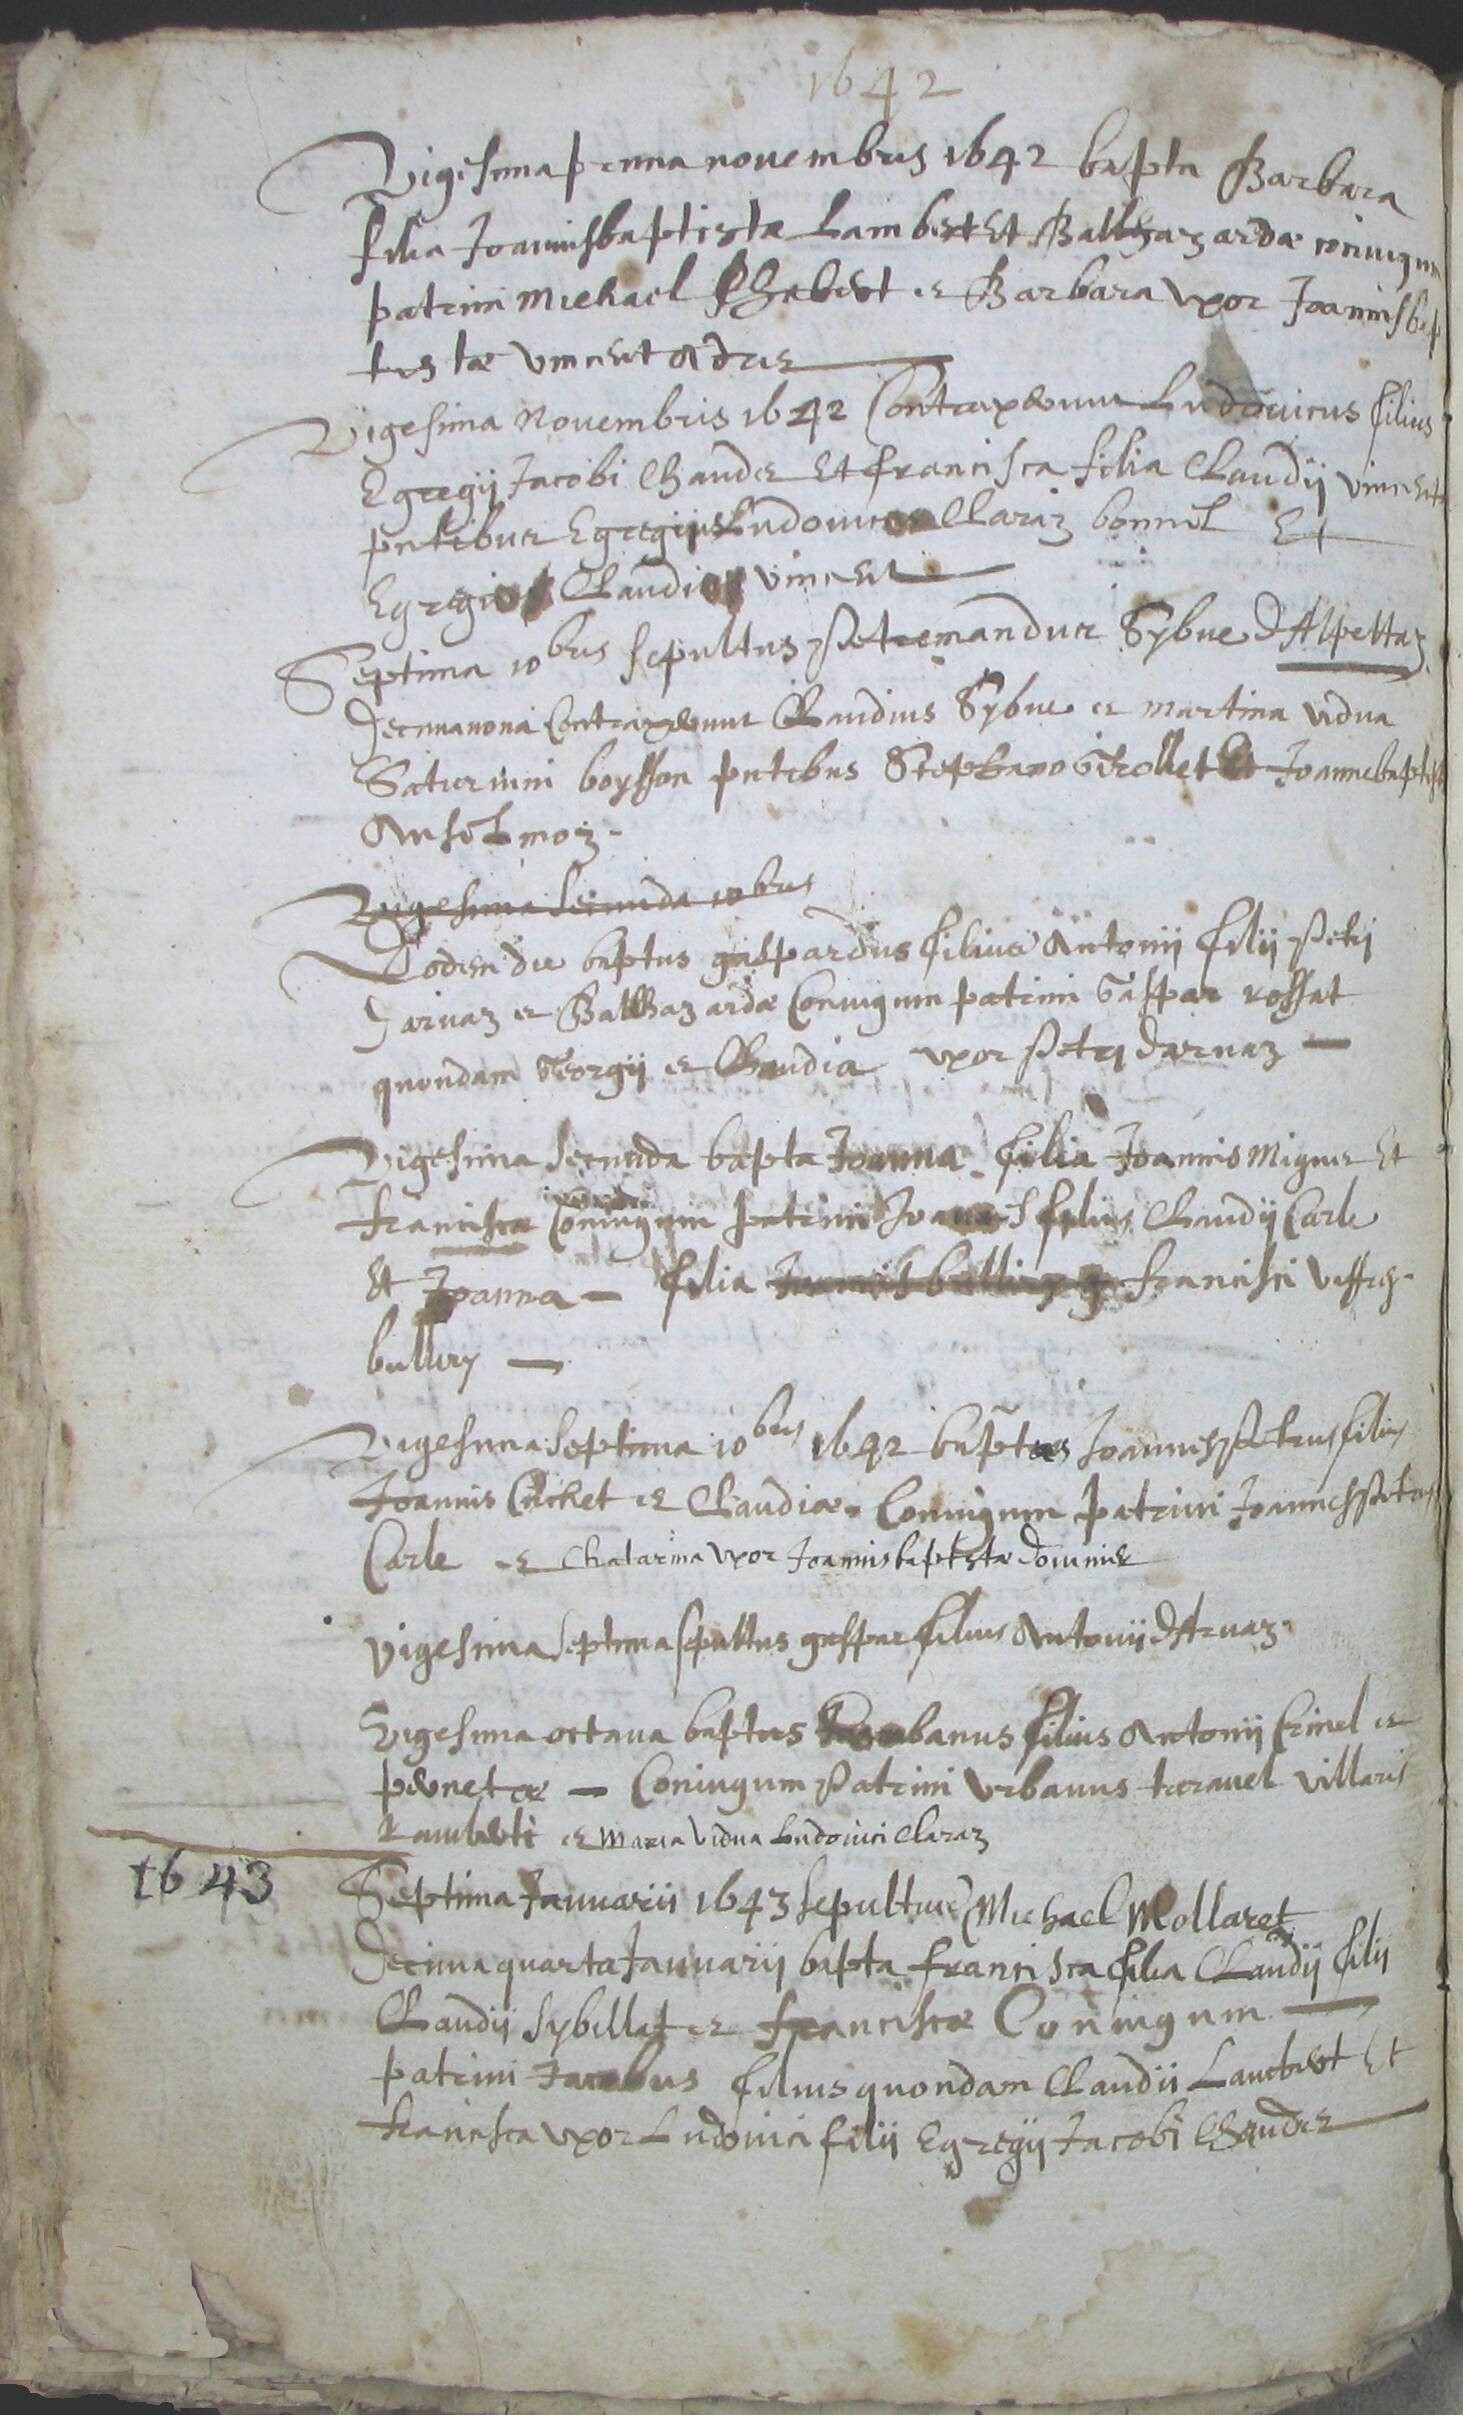 1642
Vigesima prima novembris 1642 bapta Barbara
filia Joannisbaptistæ Lambert Et Balthazardæ coniugum
patrini Michael Chabert et Barbara Uxor Joannisbap
tistæ Vincent
Vigesima Novembris 1642 Contraxerunt Ludovicus filius
Egregij Jacobi Chaudet Et francisca filia Claudij Vincent
pntibus Egregius Ludovicus Claraz bonnel Et
Egregius Claudius Vincent
Septima 10bris sepultus Petremandus Sybue dAlpettaz
Decimanona Contraxerunt Claudius Sybue et Martina Vidua
Saturnini boysson pntibus Stephano Grollet Et Joannebaptista
Anselmoz
Vigesima secunda 10bris
Eodem die baptus gaspardus filius Antonii filii Petri
Darvaz et Balthazardæ Coniugum patrini Gaspar rossat
quondam Georgij et Claudia uxor Petri Darvaz
Vigesima secunda bapta Joanna filia Joannis Et
franciscæ Coniugum patrini Joannes filius Claudij Carle
Et Joanna filia francisci
bulliez
Vigesima septima 10bris 1642 baptus Joannes Petrus filius
Joannis Cuchet et Claudiæ Coniugum patrini Joannes Petrus
Carle et Chatarina Uxor Joannisbaptistæ
Vigesima septima sepultus gaspar filius Antonij dArvaz
Vigesima octava baptus filius Antonij Crinel et
pernetæ Coniugum Patrini Urbanus travel Villaris
Lamberti et Maria Vidua Ludovici Claraz
1643 Septima Januarii 1643 sepultus Michael Mollaret
Decima quarta Januarij bapta francisca filia Claudij filij
Claudij Sybillat et franciscæ Coniugum
patrini Jacobus filius quondam Claudii Lambert Et
francisca uxor Ludovici filij Egregij Jacobi Chaudet